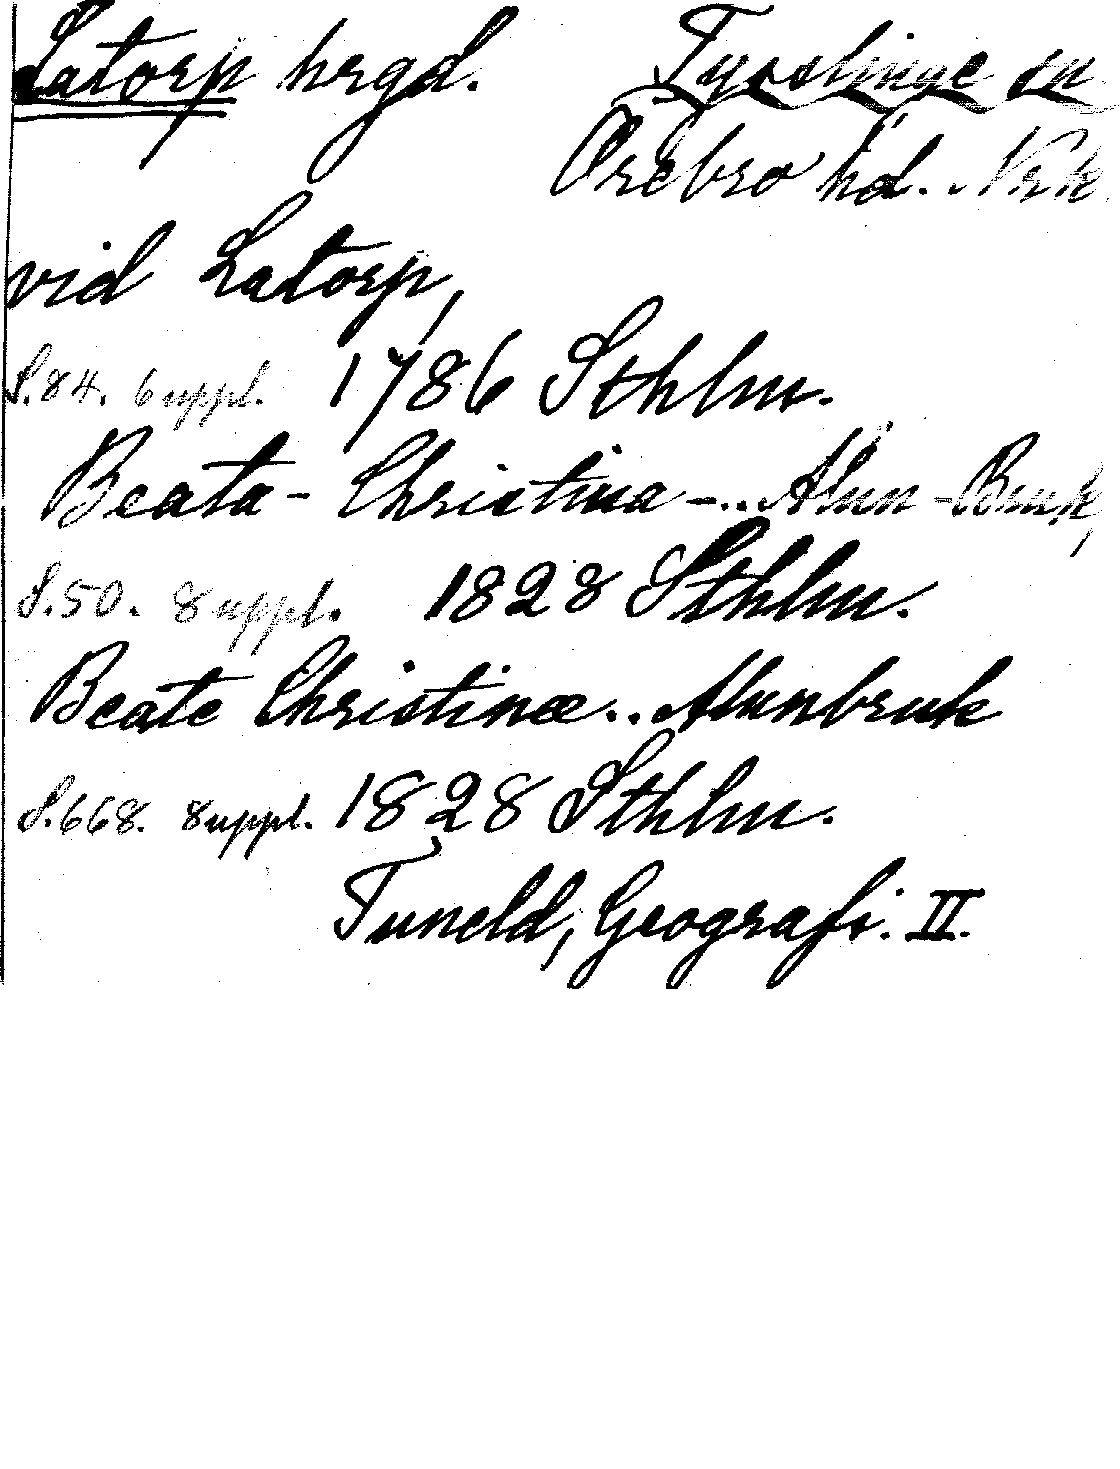 Latorp hrgd. Tysslinge sn
Örebro hd. Nrk
vid Latorp,
S.84. 6 uppl. 1786 Sthlm.
Beata-Christina-..Alun-Bruk,
S.50. 8 uppl. 1828 Sthlm.
Beate Christinæ..Alunbruk
S.668. 8 uppl. 1828 Sthlm.
Tuneld, Geografi. II.